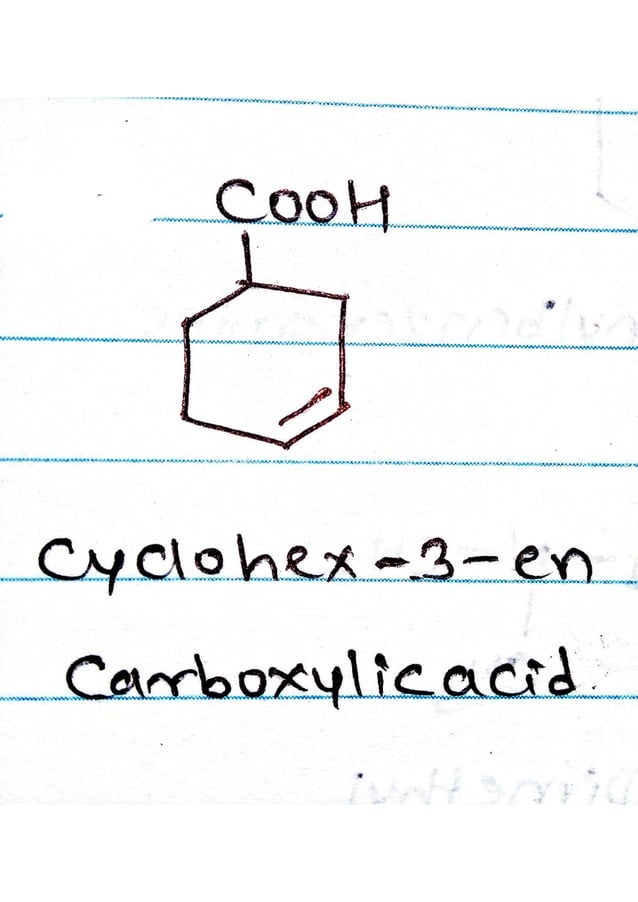 COOH
Cyclohex-3-en
Carboxylic acid.